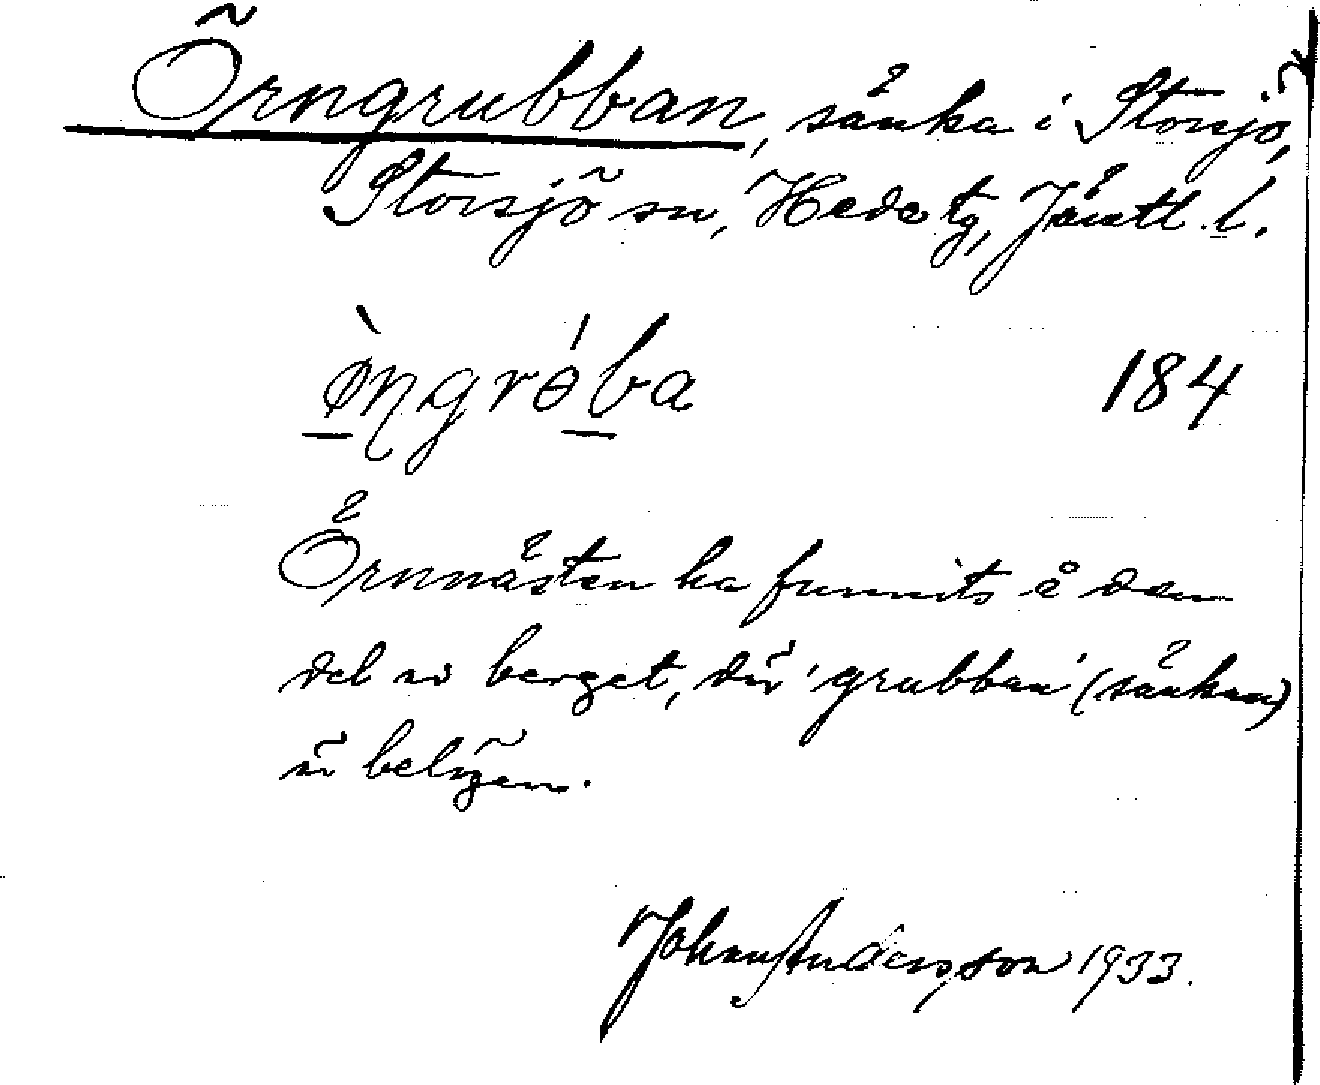 Örngrubban, sänka i Storsjö,
Storsjö sn, Hede tg, Jämtl. l.
ø̀ŋgrɵ́ba 184
Örnnästen ha funnits å den
del av berget, där 'grubban' (sänkan)
är belägen.
Johan Andersson 1933.